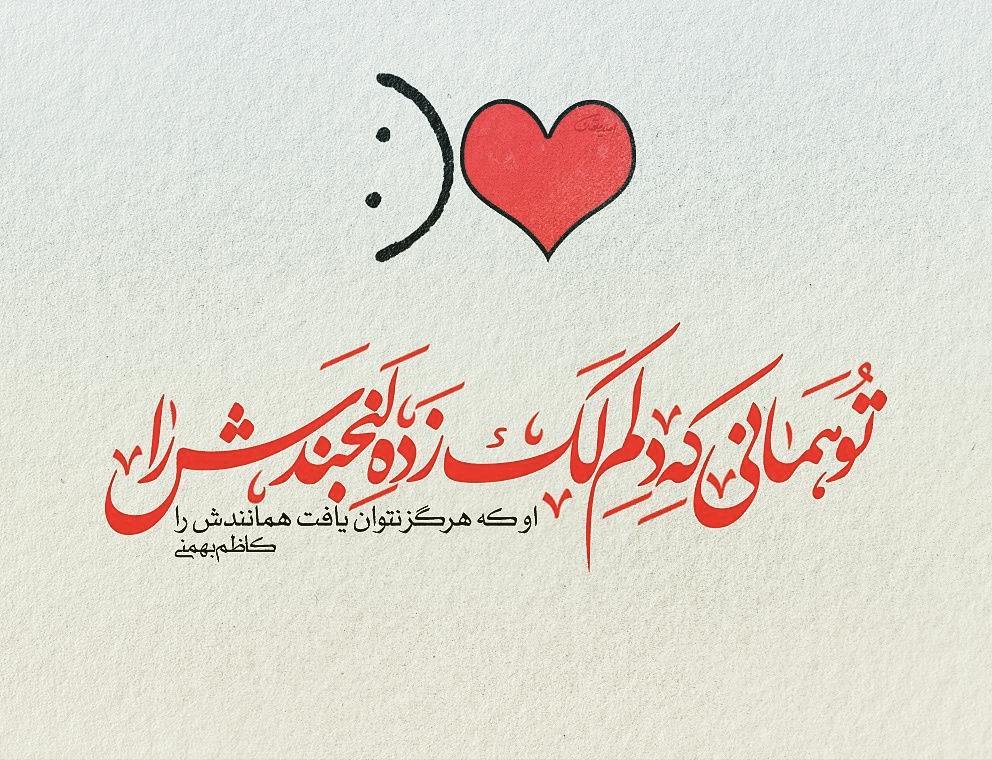 تو همانی که دلم لک زده لبخندش را
او که هرگز نتوان یافت همانندش را
کاظم بهمنی